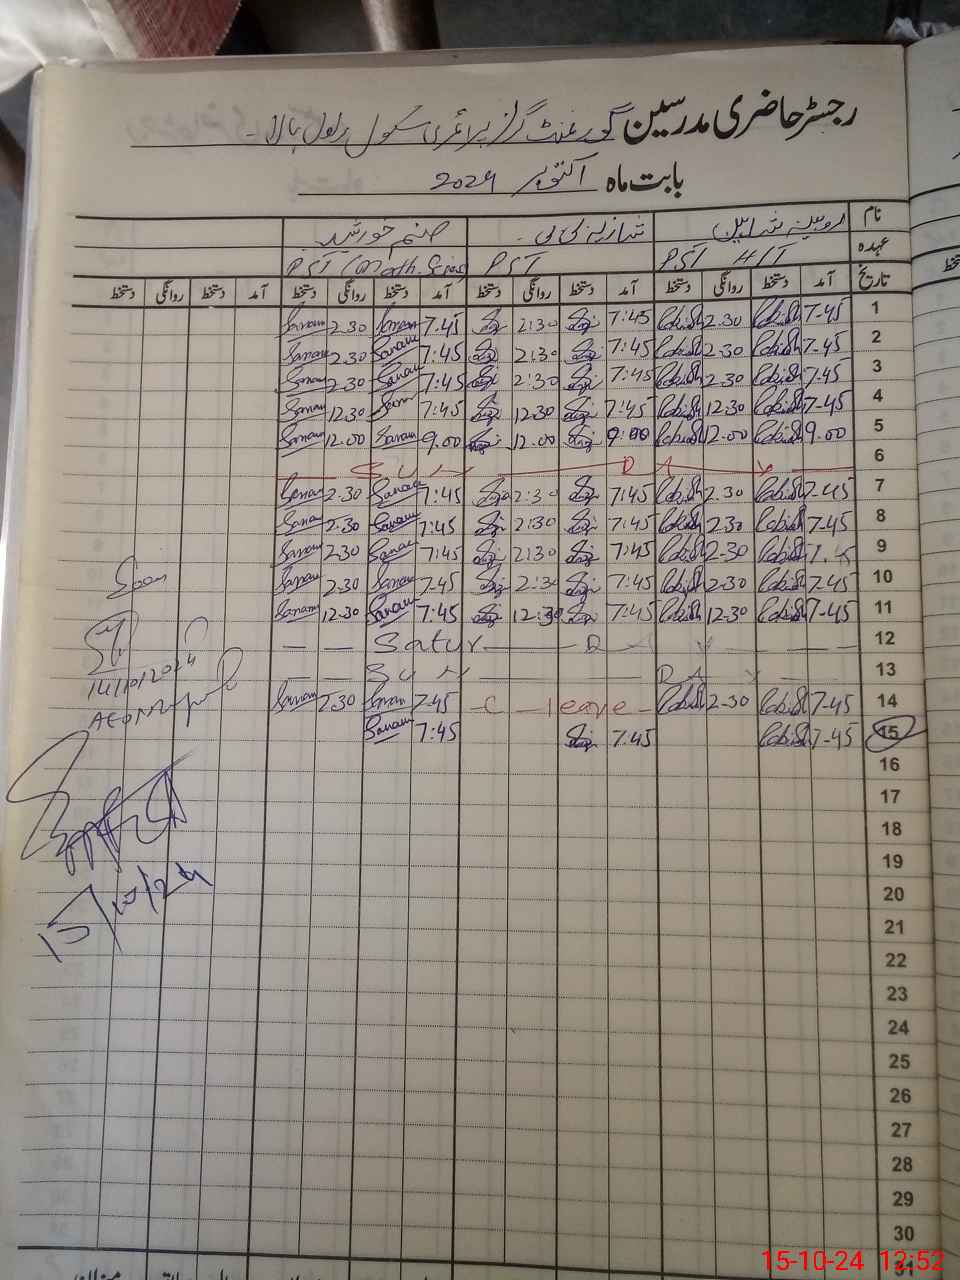 رجسٹر حاضری مدرسین گورنمنٹ گرلز پرائمری سکول ہرلول بالا۔
بابت ماہ اکتوبر 2024
نام روبینہ شاہین شازیہ بی بی۔ صنم خورشید
عہدہ PST H/T PST PST (Math. Science)
تاریخ آمد دستخط روانگی دستخط آمد دستخط روانگی دستخط آمد دستخط روانگی دستخط آمد دستخط روانگی دستخط
1 7-45 2.30 7:45 2:30 7.45 Sanam 2.30 Sanam
2 7-45 2-30 7:45 2:30 7:45 Sanam 2.30 Sanam
3 7-45 2-30 7:45 2:30 7:45 Sanam 2.30 Sanam
4 7-45 12-30 7:45 12:30 7:45 Sanam 12.30 Sanam
5 9.00 12.00 9:00 12.00 9.00 Sanam 12.00 Sanam
6 SUN DAY
7 7-45 2.30 7:45 2:30 7:45 Sanam 2.30 Sanam
8 7-45 2.30 7:45 2:30 7:45 Sanam 2.30 Sanam
9 7.45 2-30 7:45 2:30 7:45 Sanam 2.30 Sanam
10 7-45 2-30 7:45 2:30 7.45 Sanam 2.30 Sanam
11 7-45 12-30 7:45 12:30 7:45 Sanam 12.30 Sanam
12 Satur DAY
13 SUN DAY
14 7-45 2-30 C - leave - 7-45 Sanam 2.30 Sanam
15 7-45 7:45 7:45 Sanam
14/10/2024
AEO
15/10/24
16
17
18
19
20
21
22
23
24
25
26
27
28
29
30
31
15-10-24 12:52